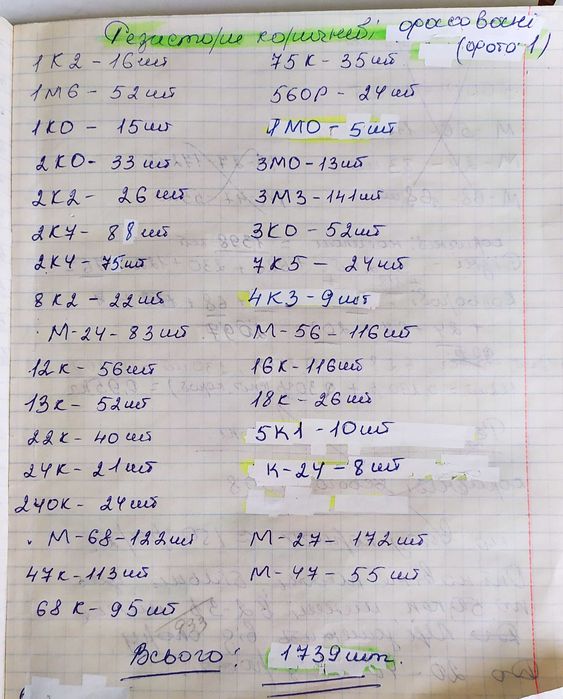 Резистори коричневі фасовані
(фото 1)
1К2 - 16шт 75К - 35шт
1М6 - 52шт 560Р - 24шт
1К0 - 15шт 1М0 - 5шт
2К0 - 33шт 3М0 - 13шт
2К2 - 26шт 3М3 - 141шт
2К7 - 88шт 3К0 - 52шт
2К4 - 75шт 7К5 - 24шт
8К2 - 22шт 4К3 - 9шт
М-24 - 83шт М-56 - 116шт
12к - 56шт 16К - 116шт
13к - 52шт 18К - 26шт
22к - 40шт 5К1 - 10шт
24к - 21шт К-24 - 8шт
240к - 24шт
М-68 - 122шт М-27 - 172шт
47к - 113шт М-47 - 55шт
68к - 95шт
933
Всього: 1739шт.